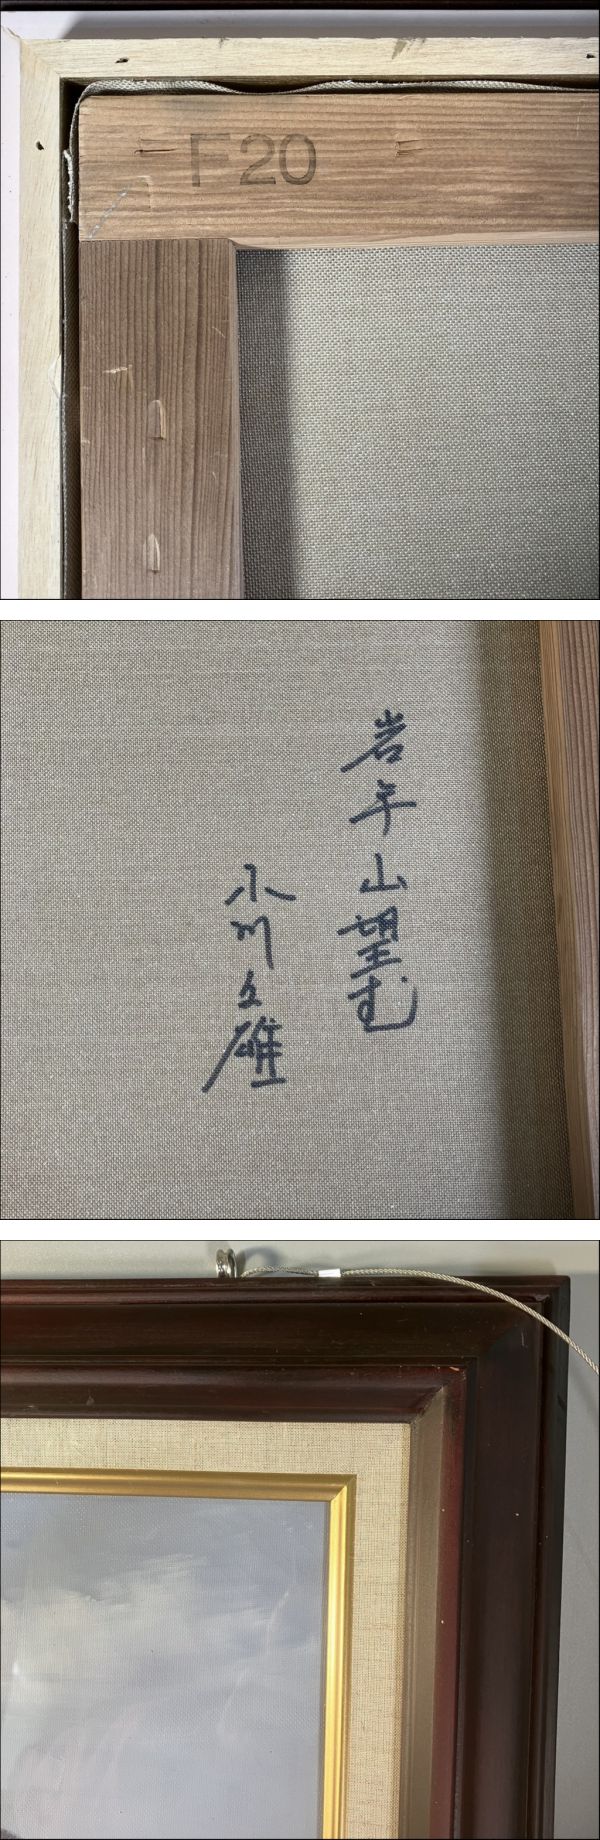 F20
岩手山望む
小川久雄